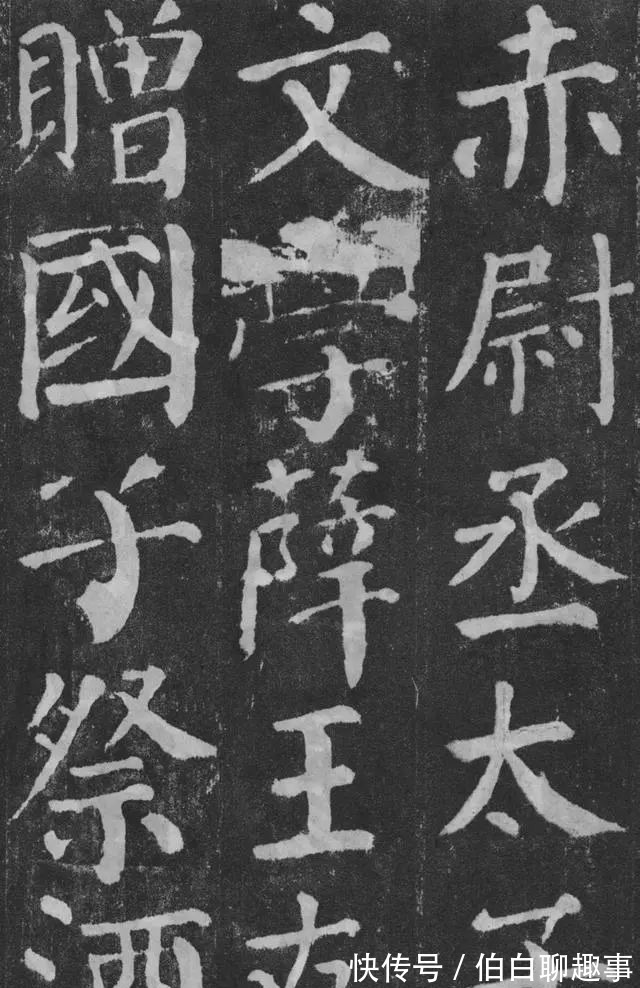 赤尉丞太子
文學薛王友
贈國子祭酒
快传号/伯白聊趣事